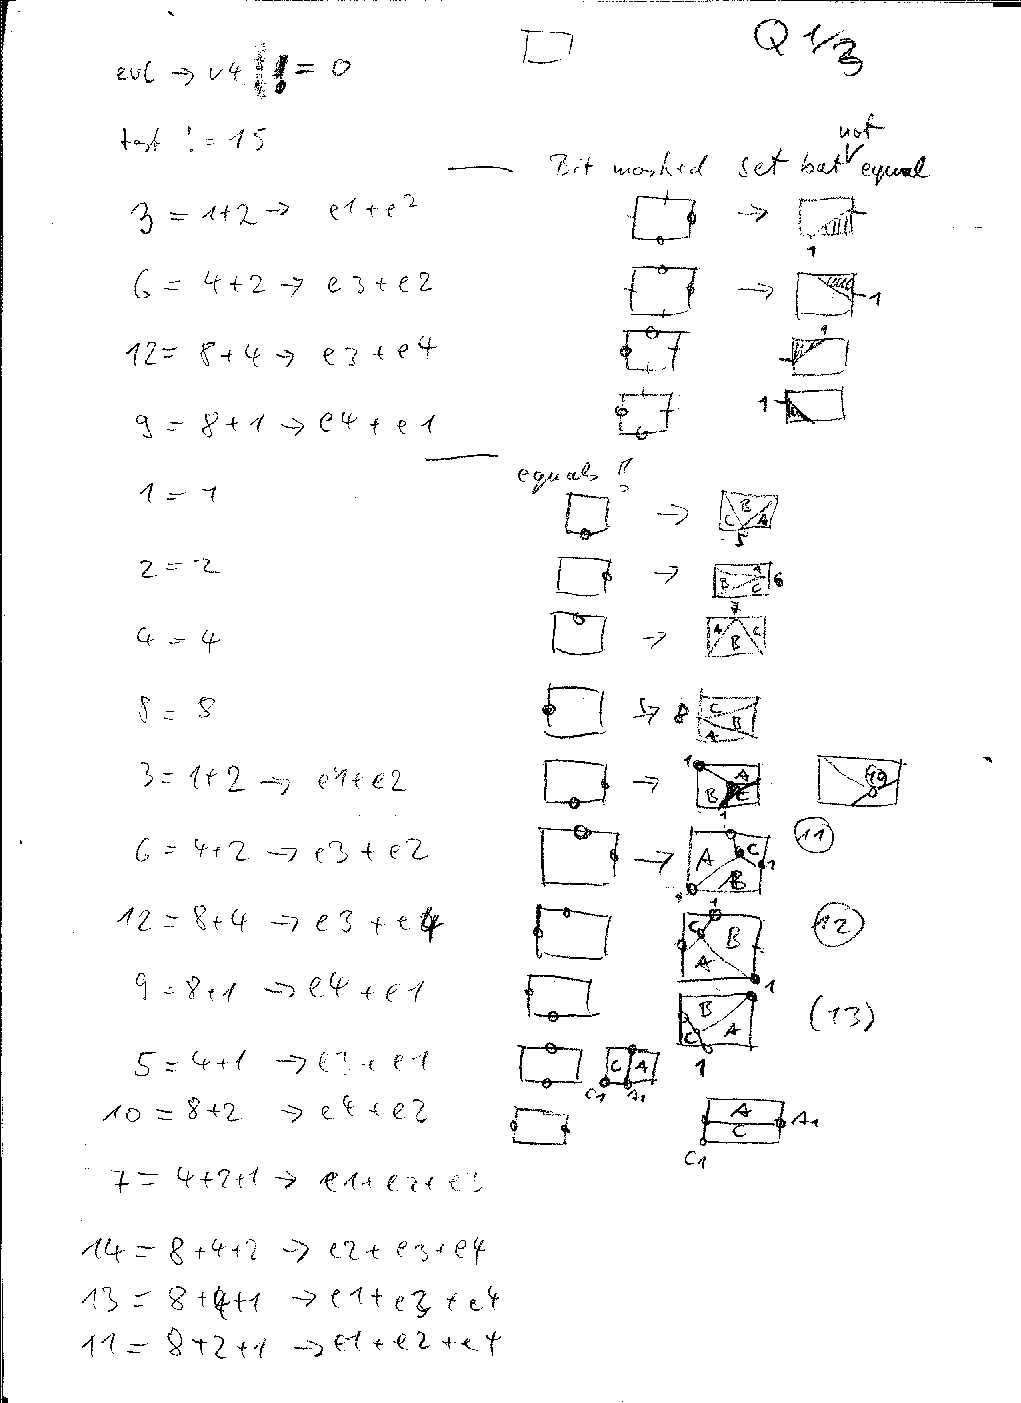 Q 1/3
evl → v4 != 0
test != 15
Bit masked set but not equal
3 = 1+2 → e1+e2
1
6 = 4+2 → e3+e2
1
12 = 8+4 → e3+e4
1
9 = 8+1 → e4+e1
1
equals !!
1 = 1
C B A
5
2 = 2
B A C 6
4 = 4
7
A B C
8 = 8
8 C B A
3 = 1+2 → e1+e2
1 A B C
1
6 = 4+2 → e3+e2
A C B 1
11
12 = 8+4 → e3+e4
1
C B A
1
12
9 = 8+1 → e4+e1
B C A
1
(13)
5 = 4+1 → e3+e1
C A
C1 A1
10 = 8+2 → e4+e2
A C A1
C1
7 = 4+2+1 → e1+e2+e3
14 = 8+4+2 → e2+e3+e4
13 = 8+4+1 → e1+e3+e4
11 = 8+2+1 → e1+e2+e4